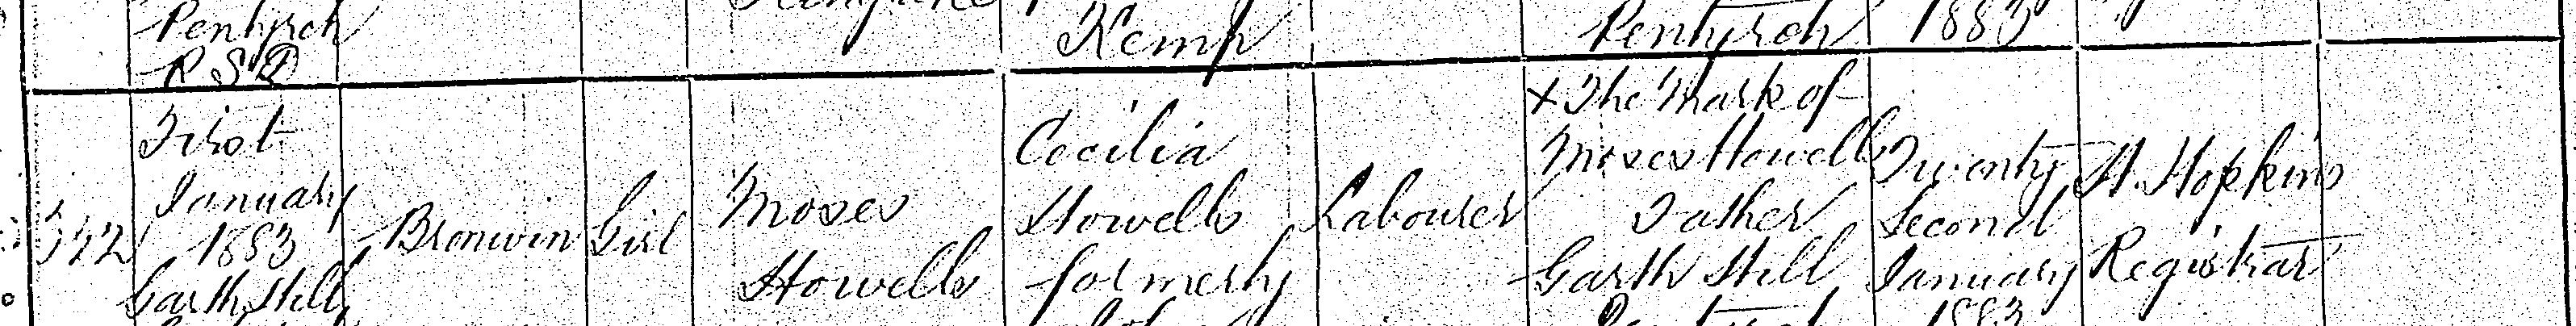 Pentyrch
R S D
Kemp
Pentyrch
1883
342
First
January
1883
Garth Hill
Bronwin
Girl
Moses
Howells
Cecilia
Howells
formerly
Labourer
X The Mark of
Moses Howells
Father
Garth Hill
Twenty
Second
January
1883
H. Hopkins
Registrar